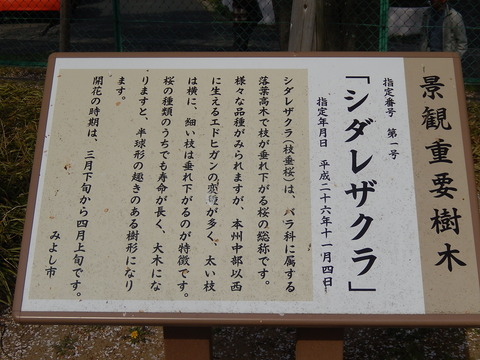 景観重要樹木
指定番号 第一号
「シダレザクラ」
指定年月日 平成二十六年十一月四日
シダレザクラ(枝垂桜)は、バラ科に属する
落葉高木で枝が垂れ下がる桜の総称です。
様々な品種がみられますが、本州中部以西
に生えるエドヒガンの変種が多く、太い枝
は横に、細い枝は垂れ下がるのが特徴です。
桜の種類のうちでも寿命が長く、大木にな
りますと、半球形の趣きのある樹形になり
ます。
開花の時期は、三月下旬から四月上旬です。
みよし市